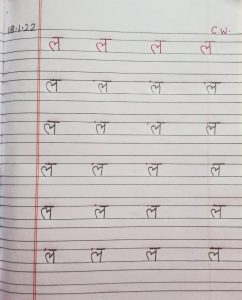 18.1.22 C.W.
ल ल ल ल
ल ल ल ल
ल ल ल ल
ल ल ल ल
ल ल ल ल
ल ल ल ल